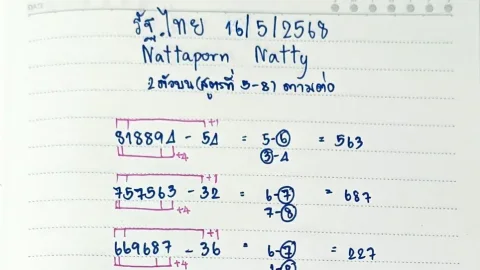 รัฐ.ไทย 16/5/2568
Nattaporn Natty
2 ตัวบน (สูตรที่ 5-8) ตามต่อ
+1
818894 - 54 = 5-6 = 563
+4 3-4
+1
757563 - 32 = 6-7 = 687
+4 7-8
+1
669687 - 36 = 6-7 = 227
+4